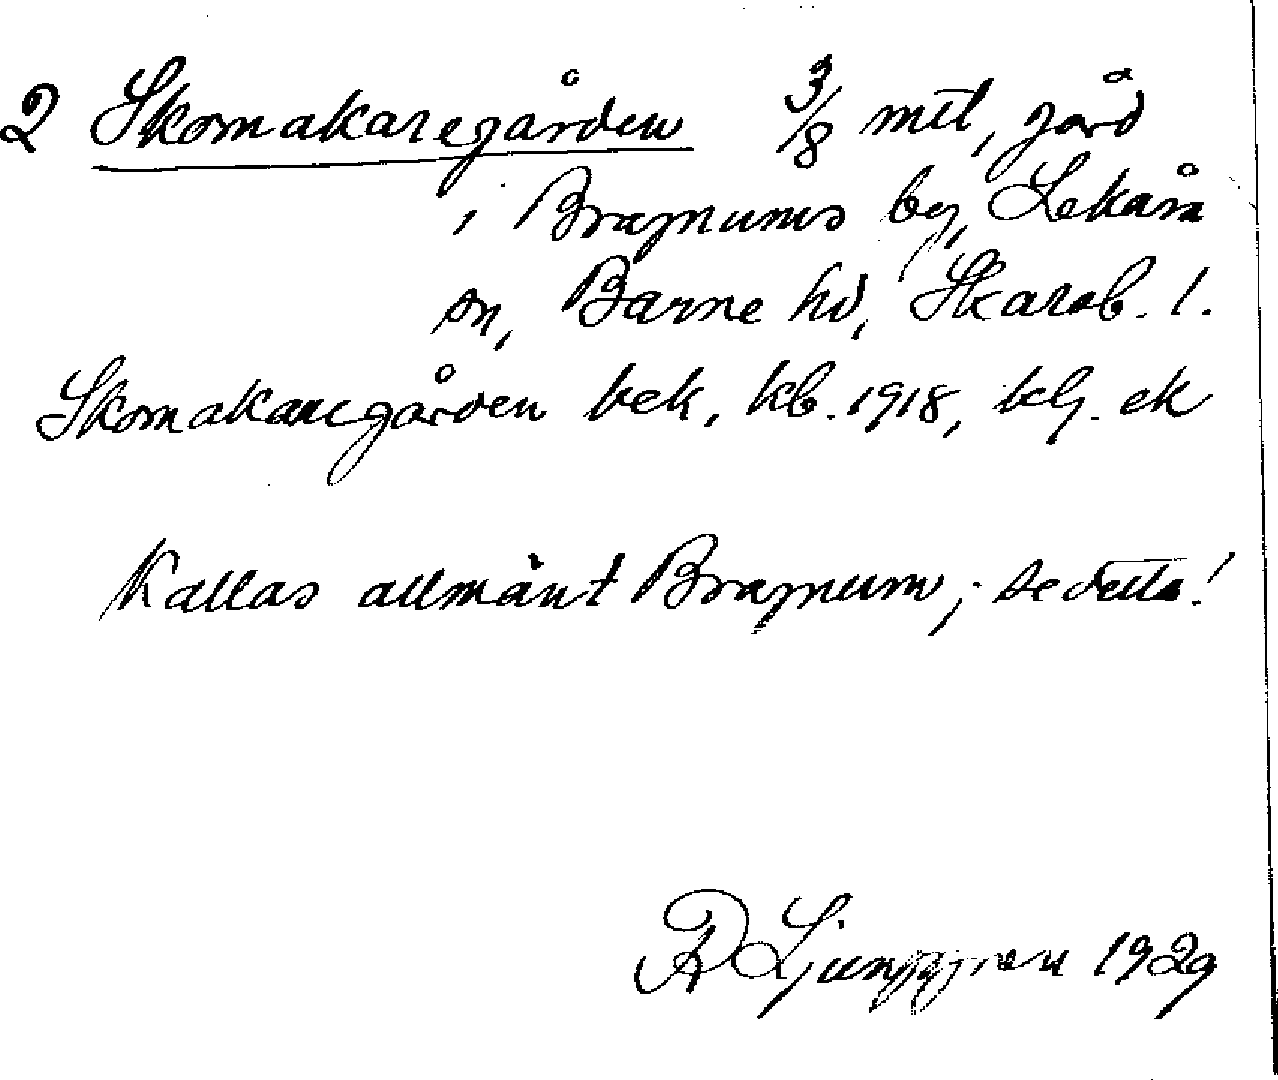 2 Skomakaregården 3/8 mtl, gård
i Bragnums by, Lekåsa
sn, Barne hd, Skarab. l.
Skomakaregården bek. kb. 1918, telj. ek
Kallas allmänt Bragnum; se detta!
R Ljunggren 1929